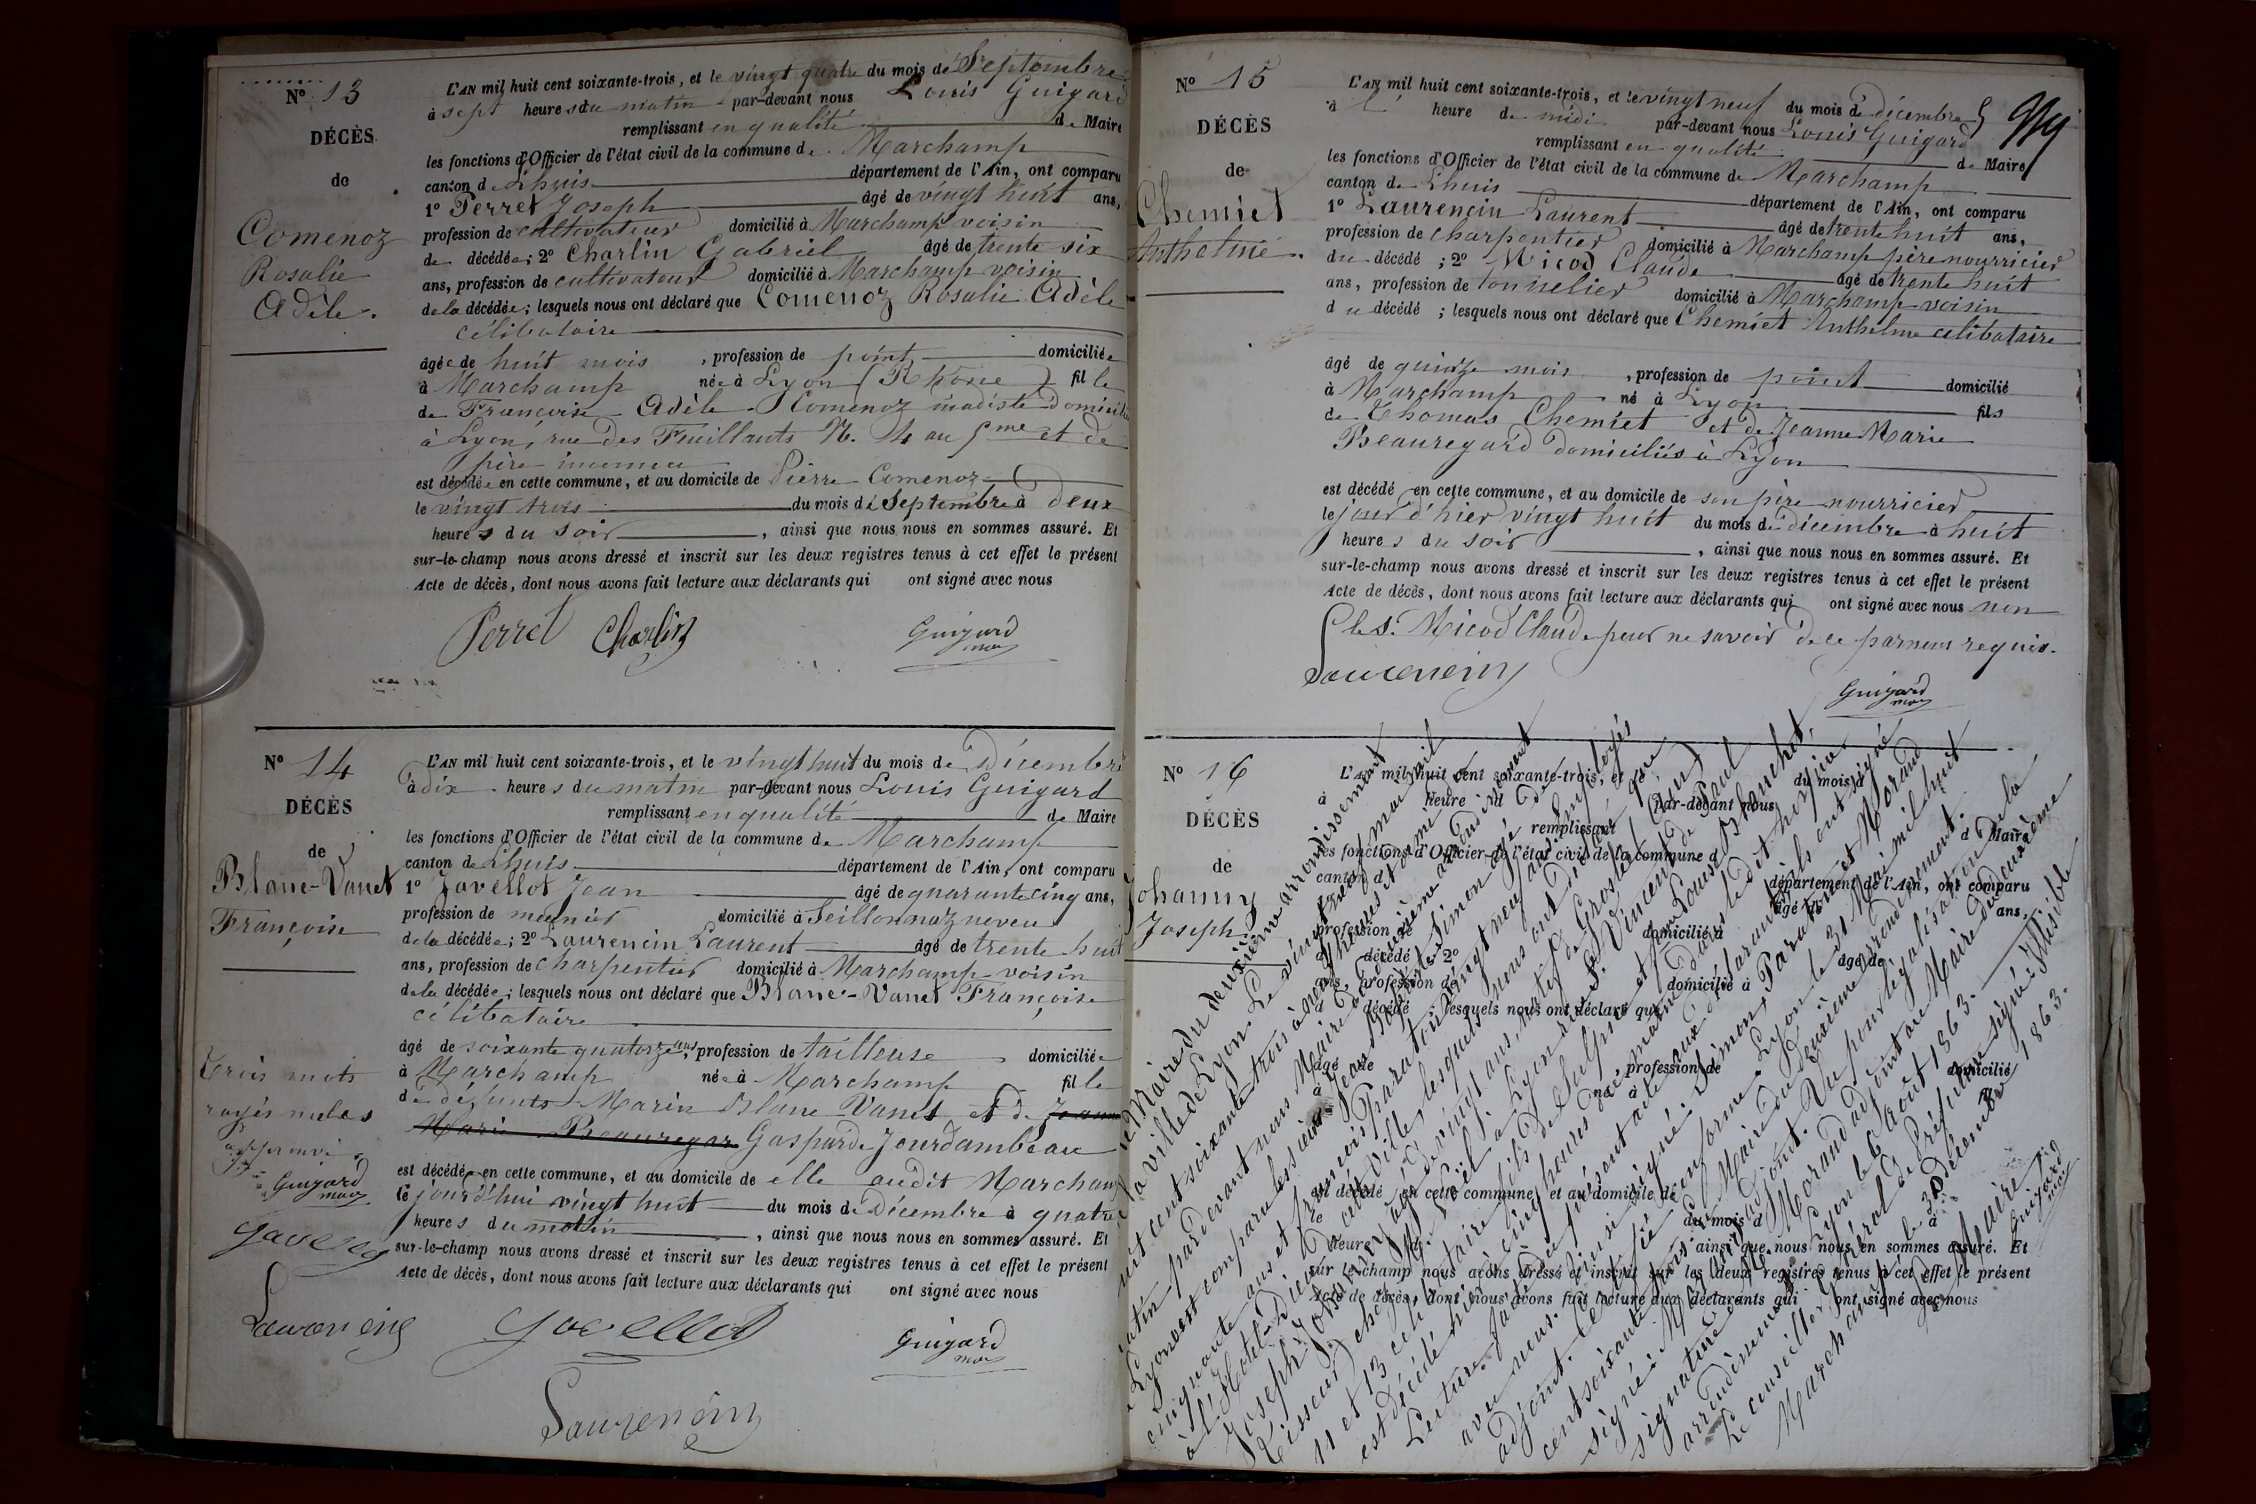 N° 13
DÉCÈS
de
Comenoz
Rosalie
Adèle.
L'AN mil huit cent soixante-trois, et le vingt quatre du mois de Septembre
à sept heures du matin par-devant nous Louis Guigard
remplissant en qualité de Maire
les fonctions d'Officier de l'état civil de la commune de Marchamp
canton de Lhuis département de l'Ain, ont comparu
1° Perret Joseph âgé de vingt huit ans,
profession de cultivateur domicilié à Marchamp voisin
de décédée; 2° Charlin Gabriel âgé de trente six
ans, profession de cultivateur domicilié à Marchamp voisin
de la décédée; lesquels nous ont déclaré que Comenoz Rosalie Adèle
célibataire
âgée de huit mois, profession de point domiciliée
à Marchamp née à Lyon (Rhône) fille
de Françoise Adèle Comenoz modiste domiciliée
à Lyon, rue des Feuillants N. 4 au 5me et de
père inconnu
est décédée en cette commune, et au domicile de Pierre Comenoz
le vingt trois du mois de Septembre à deux
heures du soir, ainsi que nous nous en sommes assuré. Et
sur-le-champ nous avons dressé et inscrit sur les deux registres tenus à cet effet le présent
Acte de décès, dont nous avons fait lecture aux déclarants qui ont signé avec nous
Perret Charlin Guigard
maire
N° 14
DÉCÈS
de
Blanc-Vanet
Françoise
L'AN mil huit cent soixante-trois, et le vingt huit du mois de Décembre
à dix heures du matin par-devant nous Louis Guigard
remplissant en qualité de Maire
les fonctions d'Officier de l'état civil de la commune de Marchamp
canton de Lhuis département de l'Ain, ont comparu
1° Javellot Jean âgé de quarante cinq ans,
profession de meunier domicilié à Seillonnaz neveu
de la décédée; 2° Laurencin Laurent âgé de trente huit
ans, profession de charpentier domicilié à Marchamp voisin
de la décédée; lesquels nous ont déclaré que Blanc-Vanet Françoise
célibataire
âgé de soixante quatorze ans, profession de tailleuse domiciliée
à Marchamp née à Marchamp fille
de défunts Marin Blanc Vanet et de Jeanne
Marie Beauregar Gasparde Jourdambeau
est décédée en cette commune, et au domicile de elle audit Marchamp
le jourd'hui vingt huit du mois de Décembre à quatre
heures du matin, ainsi que nous nous en sommes assuré. Et
sur-le-champ nous avons dressé et inscrit sur les deux registres tenus à cet effet le présent
Acte de décès, dont nous avons fait lecture aux déclarants qui ont signé avec nous
Trois mots
rayés nules
approuvé
Guigard
maire
Javellot
Laurencin Javellot Guigard
maire
Laurencin
N° 15
DÉCÈS
de
Chemiet
Anthelme.
L'AN mil huit cent soixante-trois, et le vingt neuf du mois de décembre
à heure de midi par-devant nous Louis Guigard
remplissant en qualité de Maire
les fonctions d'Officier de l'état civil de la commune de Marchamp
canton de Lhuis département de l'Ain, ont comparu
1° Laurencin Laurent âgé de trente huit ans,
profession de charpentier domicilié à Marchamp père nourricier
du décédé; 2° Micod Claude âgé de trente huit
ans, profession de tonnelier domicilié à Marchamp voisin
du décédé; lesquels nous ont déclaré que Chemiet Anthelme célibataire
âgé de quinze mois, profession de point domicilié
à Marchamp né à Lyon fils
de Thomas Chemiet et de Jeanne Marie
Beauregard domiciliés à Lyon
est décédé en cette commune, et au domicile de son père nourricier
le jour d'hier vingt huit du mois de décembre à huit
heures du soir, ainsi que nous nous en sommes assuré. Et
sur-le-champ nous avons dressé et inscrit sur les deux registres tenus à cet effet le présent
Acte de décès, dont nous avons fait lecture aux déclarants qui ont signé avec nous non
le s. Micod Claude pour ne savoir de ce par nous requis.
Laurencin
Guigard
maire
N° 16
DÉCÈS
de
Johanny
Joseph
L'AN mil huit cent soixante-trois, et du mois d
à heure d par-devant nous
remplissant d Maire
les fonctions d'Officier de l'état civil de la commune d
canton d département de l'Ain, ont comparu
âgé de ans,
profession de domicilié à
décédé 2° âgé de
ans, profession de domicilié à
d décédé lesquels nous ont déclaré que
âgé de profession de domicilié
à né à fil
est décédé en cette commune, et au domicile de
le du mois d à
heure d ainsi que nous nous en sommes assuré. Et
sur-le-champ nous avons dressé et inscrit sur les deux registres tenus à cet effet le présent
Acte de décès, dont nous avons fait lecture aux déclarants qui ont signé avec nous
Maire du deuxième arrondissement
la ville de Lyon. Le vingt
huit cent soixante trois à neuf heures
matin pardevant nous Maire
Lyon est comparu les sieurs Jean Simon âgé de
cinquante ans et François Paraton vingt neuf ans, employés
à l'Hotel-Dieu de cette ville, lesquels nous ont déclaré que
Joseph Johanny âgé de vingt ans, natif de Groslet (Ain)
Tisseur chez à Lyon rue St Vincent de Paul
11 et 13 célibataire, fils de et de Louise Blanchet,
est décédé hier à cinq heures du matin dans le dit hospice
Lecture faite du présent acte aux déclarants ils ont signé
avec nous. ainsi signé: Simon, Paraton et Morand
adjoint. Certifié conforme. Lyon le 31 Mai mil huit
cent soixante trois. Maire du deuxième arrondissement.
signé: Morand adjoint. Vu pour légalisation de la
signature de Mr Morand adjoint au Maire du deuxième
arrondissement Lyon le 6 Août 1863.
Le conseiller Général de Préfecture signé: Illisible
Marchamp le 30 décembre 1863.
Le Maire
Guigard
maire